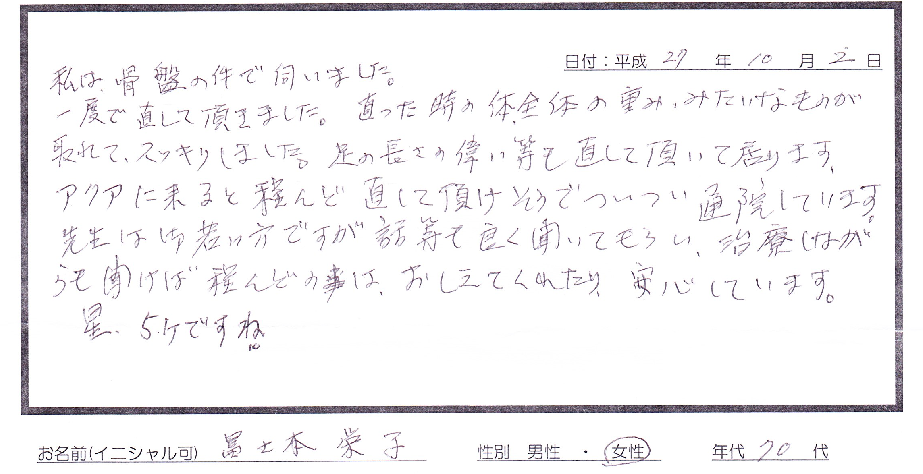 日付:平成 27 年 10 月 2 日
私は、骨盤の件で伺いました。
一度で直して頂きました。直った時の体全体の重み、みたいなものが
取れて、スッキリしました。足の長さの偉い等も直して頂いて居ります。
アクアに来ると程んど直して頂けそうでついつい通院しています。
先生はお若い方ですが話等も良く聞いてもらい、治療しなが
らも聞けば程んどの事は、おしえてくれたり、安心しています。
星、5ケですね!!
お名前(イニシャル可) 冨士本 栄子 性別 男性 ・ 女性 年代 70 代